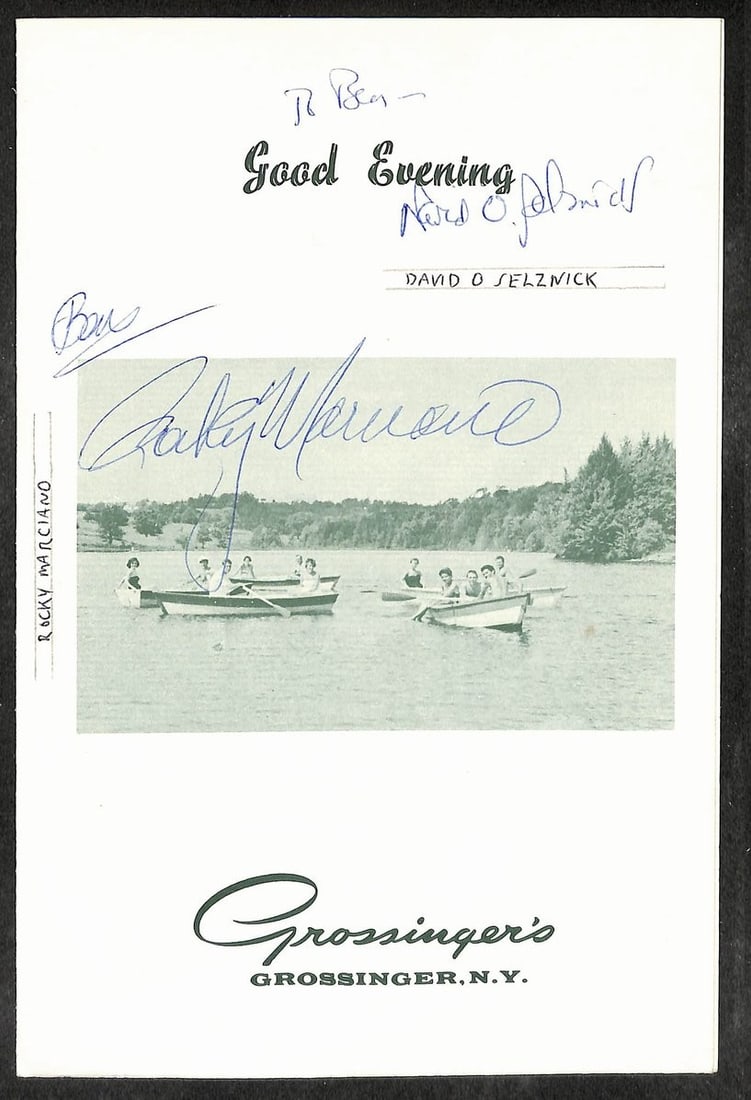 To Bea –
Good Evening
David O. Selznick
DAVID O SELZNICK
Rocky Marciano
ROCKY MARCIANO
Grossinger's
GROSSINGER, N.Y.